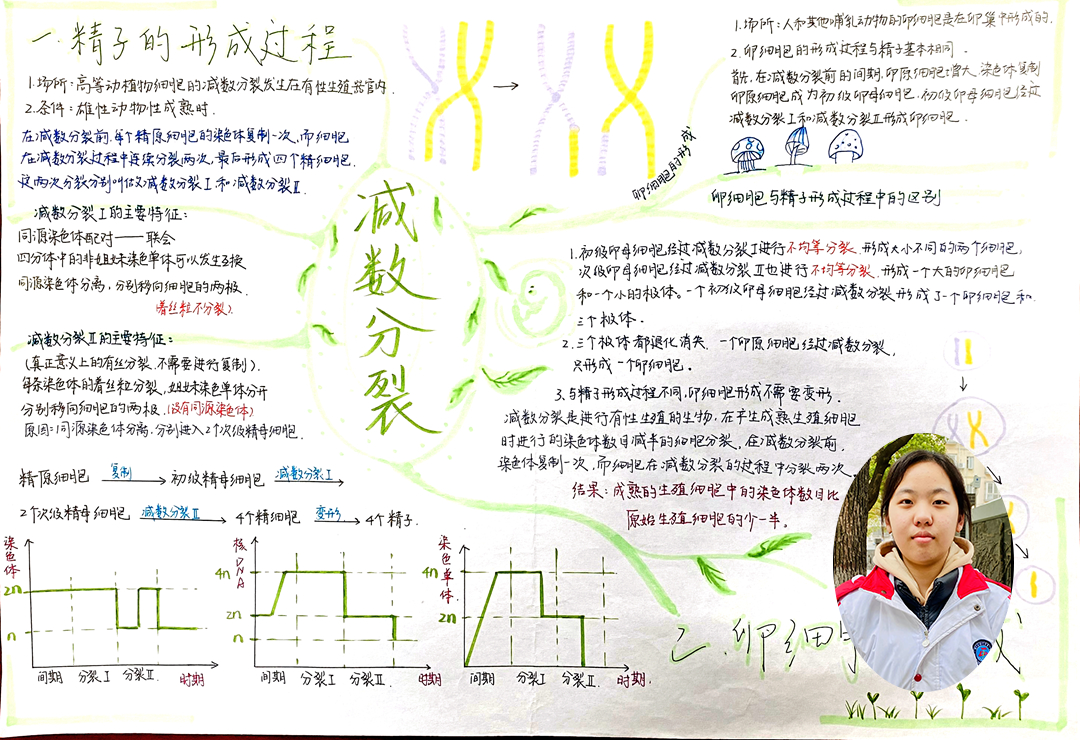 一.精子的形成过程
1.场所:高等动植物细胞的减数分裂发生在有性生殖器官内.
2.条件:雄性动物性成熟时.
在减数分裂前,每个精原细胞的染色体复制一次,而细胞
在减数分裂过程中连续分裂两次,最后形成四个精细胞.
这两次分裂分别叫做减数分裂I和减数分裂II.
减数分裂I的主要特征:
同源染色体配对——联会
四分体中的非姐妹染色单体可以发生互换
同源染色体分离,分别移向细胞的两极.
(着丝粒不分裂)
减数分裂II的主要特征:
(真正意义上的有丝分裂,不需要进行复制).
每条染色体的着丝粒分裂,姐妹染色单体分开
分别移向细胞的两极.(没有同源染色体)
原因:同源染色体分离,分别进入2个次级精母细胞.
精原细胞 复制 初级精母细胞 减数分裂I
2个次级精母细胞 减数分裂II 4个精细胞 变形 4个精子.
染色体
2n
n
间期 分裂I 分裂II. 时期
核DNA
4n
2n
n
间期 分裂I 分裂II. 时期
染色单体
4n
2n
间期 分裂I 分裂II. 时期.
减数分裂
卵细胞的形成
1.场所:人和其他哺乳动物的卵细胞是在卵巢中形成的.
2.卵细胞的形成过程与精子基本相同.
在减数分裂前的间期,卵原细胞增大,染色体复制
卵原细胞成为初级卵母细胞.初级卵母细胞经过
减数分裂I和减数分裂II形成卵细胞.
卵细胞与精子形成过程中的区别
1.初级卵母细胞经过减数分裂I进行不均等分裂,形成大小不同的两个细胞,
次级卵母细胞经过减数分裂II也进行不均等分裂,形成一个大的卵细胞
和一个小的极体。一个初级卵母细胞经过减数分裂形成了一个卵细胞和
三个极体.
2.三个极体都退化消失.一个卵原细胞经过减数分裂,
只形成一个卵细胞.
3.与精子形成过程不同,卵细胞形成不需要变形.
减数分裂是进行有性生殖的生物,在产生成熟生殖细胞
时进行的染色体数目减半的细胞分裂,在减数分裂前,
染色体复制一次,而细胞在减数分裂的过程中分裂两次
结果:成熟的生殖细胞中的染色体数目比
原始生殖细胞的少一半。
二.卵细
成